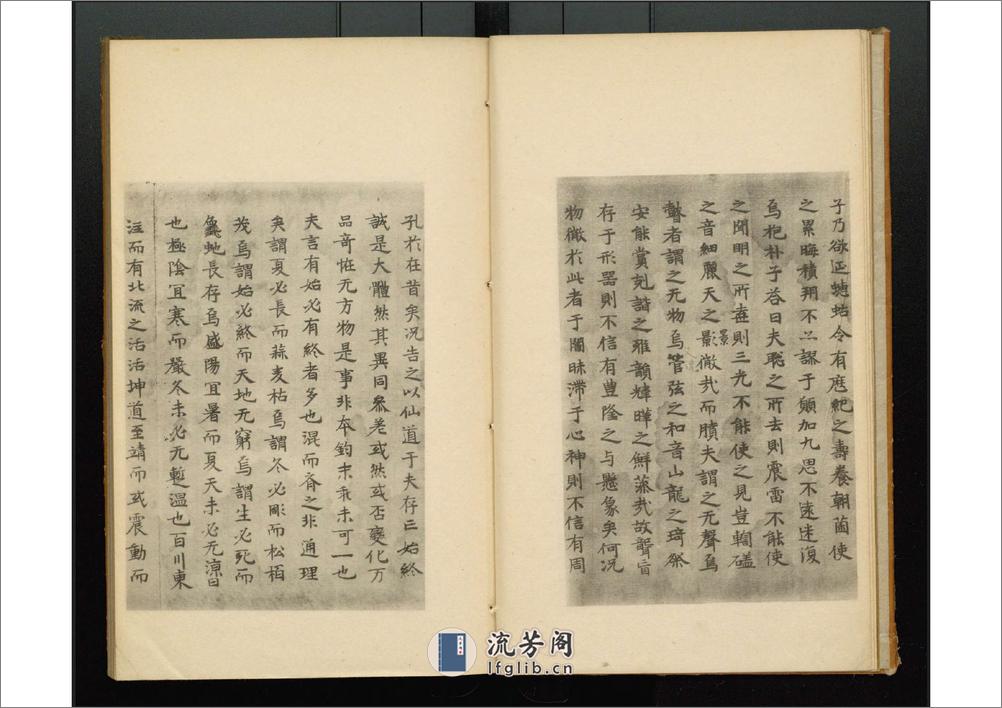 子乃欲延蟪蛄令有歷紀之壽養朝菌使
之累晦積朔不亦謬于願加九思不遠迷復
焉抱朴子荅曰夫聦之所去則震雷不能使
之聞明之所棄則三光不能使之見豈輷磕
之音細麗天之景影微㢤而聵夫謂之无聲焉
瞽者謂之无物焉管弦之和音山龍之琦粲
安能賞克諧之雅韻暐曄之鮮藻㢤故聾盲
存于形器則不信有豊隆之与懸象矣何況
物微於此者于闇昧滯于心神則不信有周
孔於在昔矣況告之以仙道于夫存亡始終
誠是大體然其異同參差或然或否變化万
品奇恠无方物是事非本鈞末乖未可一也
夫言有始必有終者多也混而齊之非通理
矣謂夏必長而蒜麦枯焉謂冬必彫而松栢
茂焉謂始必終而天地无窮焉謂生必死而
龜虵長存焉盛陽冝暑而夏天未必无凉日
也極陰冝寒而嚴冬未必无蹔温也百川東
注而有北流之活活坤道至靖而或震動而
流芳阁
lfglib.cn